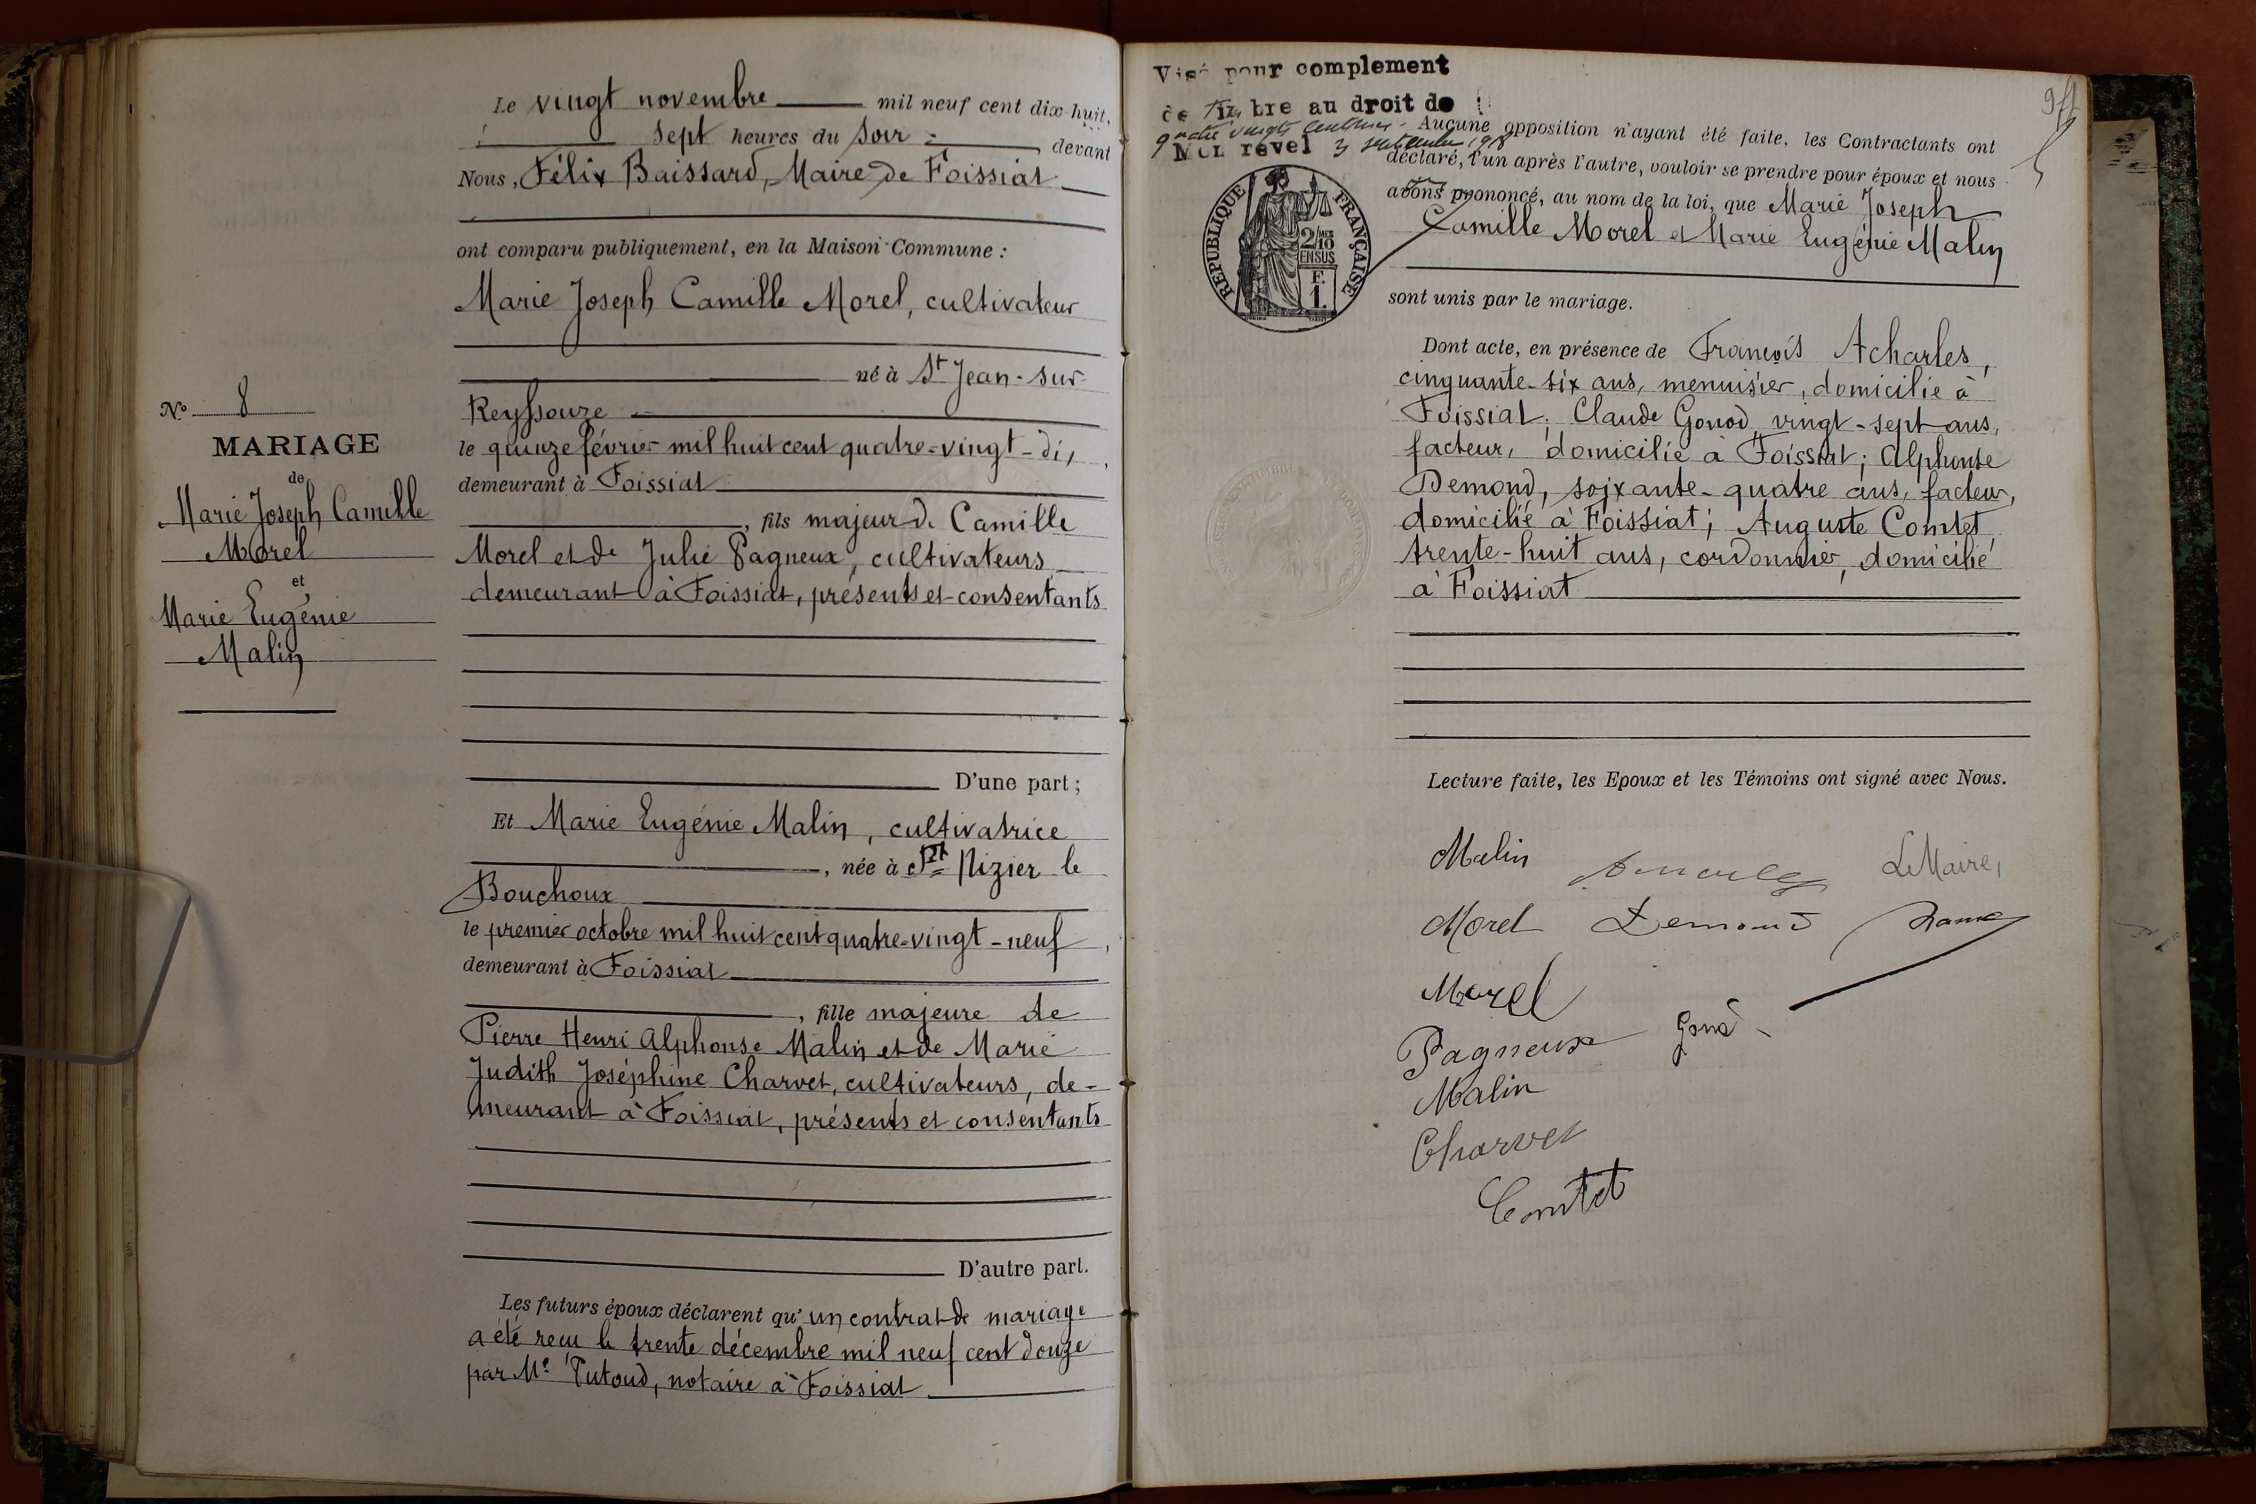 Le vingt novembre mil neuf cent dix-huit,
à sept heures du soir devant
Nous, Félix Baissard, Maire de Foissiat
ont comparu publiquement, en la Maison Commune :
Marie Joseph Camille Morel, cultivateur
né à St Jean-sur-
Reyssouze
le quinze février mil huit cent quatre-vingt-dix,
demeurant à Foissiat
, fils majeur de Camille
Morel et de Julie Pagneux, cultivateurs
demeurant à Foissiat, présents et consentants
D'une part ;
Et Marie Eugénie Malin, cultivatrice
, née à St Nizier le
Bouchoux
le premier octobre mil huit cent quatre-vingt-neuf,
demeurant à Foissiat
, fille majeure de
Pierre Henri Alphonse Malin et de Marie
Judith Joséphine Charvet, cultivateurs, de-
meurant à Foissiat, présents et consentants
D'autre part.
Les futurs époux déclarent qu'un contrat de mariage
a été reçu le trente décembre mil neuf cent douze
par Me Putoud, notaire à Foissiat
No 8
MARIAGE
de
Marie Joseph Camille
Morel
et
Marie Eugénie
Malin
Visé pour complement
de timbre au droit de
quatre vingts centimes
Montrevel 3 septembre 1918
RÉPUBLIQUE FRANÇAISE
2/10
EN SUS
F.
1.
Aucune opposition n'ayant été faite, les Contractants ont
déclaré, l'un après l'autre, vouloir se prendre pour époux et nous
avons prononcé, au nom de la loi, que Marie Joseph
Camille Morel et Marie Eugénie Malin
sont unis par le mariage.
Dont acte, en présence de François Acharles,
cinquante-six ans, menuisier, domicilié à
Foissiat; Claude Gonod, vingt-sept ans,
facteur, domicilié à Foissiat; Alphonse
Demond, soixante-quatre ans, facteur,
domicilié à Foissiat; Auguste Comtet
trente-huit ans, cordonnier, domicilié
à Foissiat
Lecture faite, les Epoux et les Témoins ont signé avec Nous.
Malin Le Maire,
Morel Demond
Morel
Pagneux Gonod
Malin
Charvet
Comtet